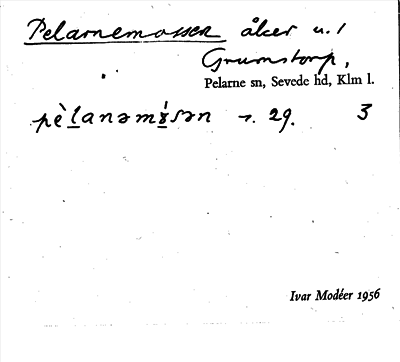 Pelarnemossen åker u. 1
Grumstorp,
Pelarne sn, Sevede hd, Klm l.
pèlanəmɤ́sən r. 29. 3
Ivar Modéer 1956